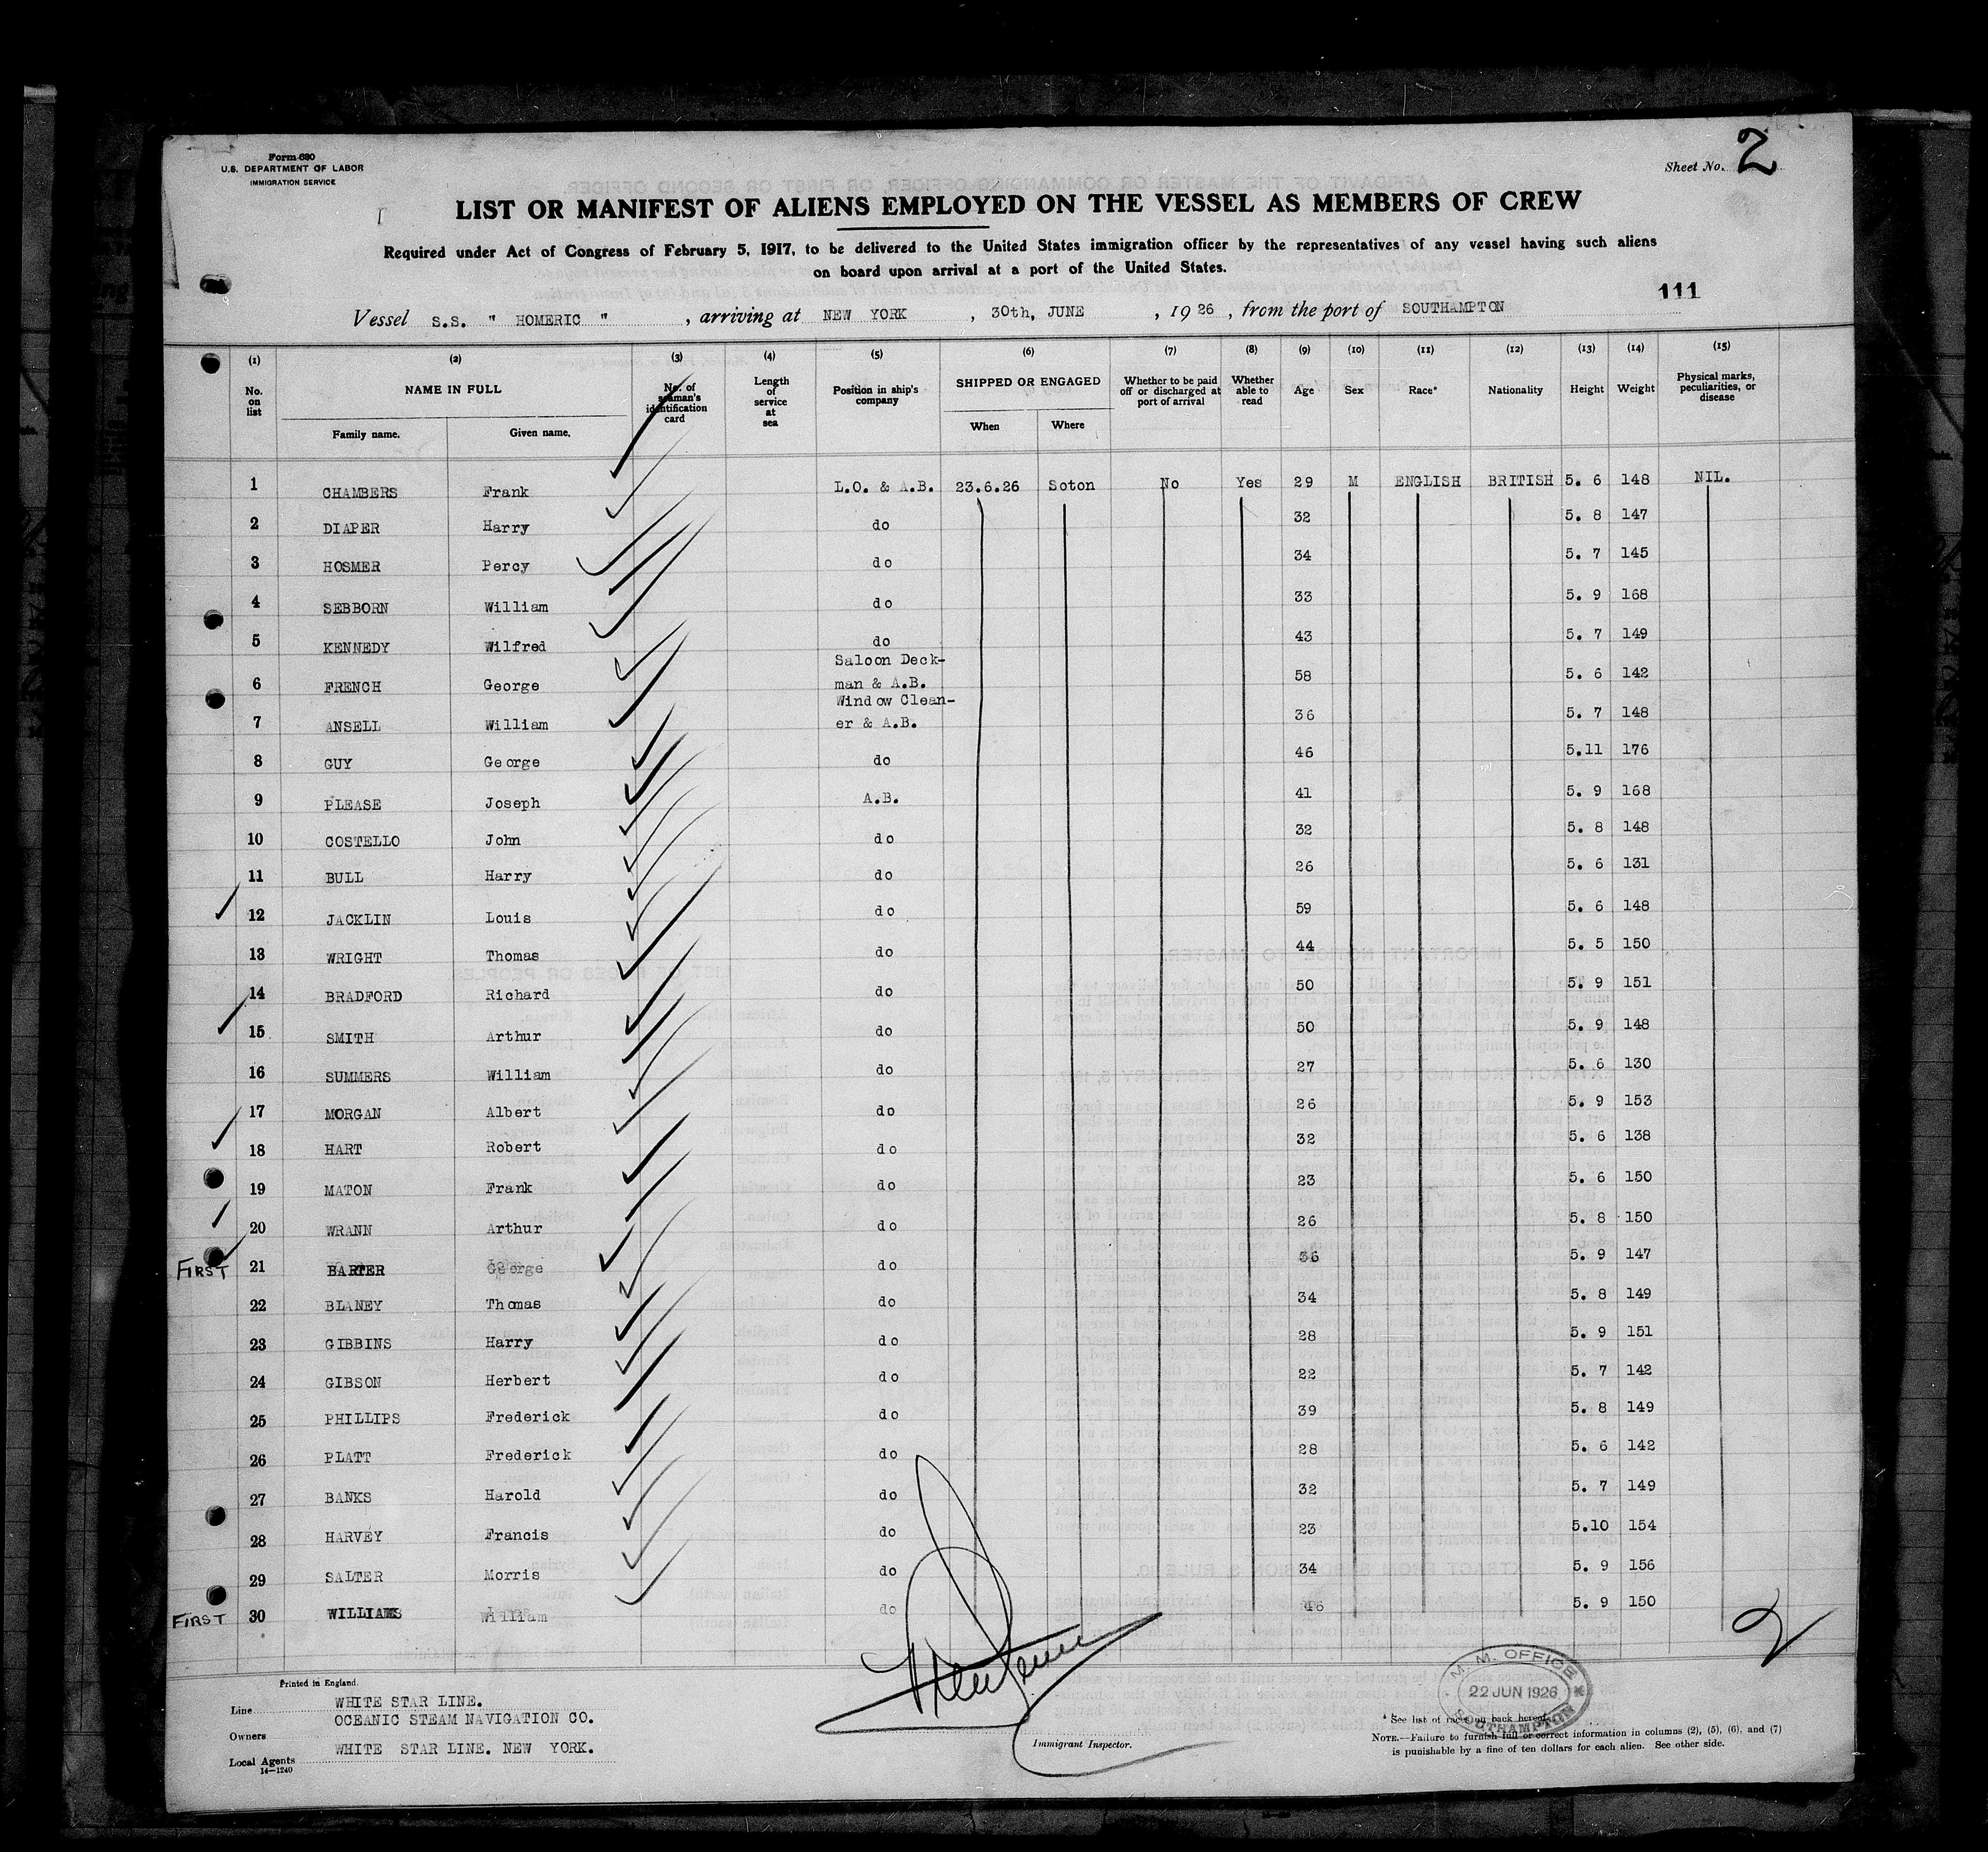 Form 680
U.S. DEPARTMENT OF LABOR
IMMIGRATION SERVICE
Sheet No. 2
LIST OR MANIFEST OF ALIENS EMPLOYED ON THE VESSEL AS MEMBERS OF CREW
Required under Act of Congress of February 5, 1917, to be delivered to the United States immigration officer by the representatives of any vessel having such aliens
on board upon arrival at a port of the United States.
111
Vessel S.S. " HOMERIC " , arriving at NEW YORK , 30th, JUNE , 1926 , from the port of SOUTHAMPTON
(1) (2) (3) (4) (5) (6) (7) (8) (9) (10) (11) (12) (13) (14) (15)
No. on list NAME IN FULL No. of seaman's identification card Length of service at sea Position in ship's company SHIPPED OR ENGAGED Whether to be paid off or discharged at port of arrival Whether able to read Age Sex Race* Nationality Height Weight Physical marks, peculiarities, or disease
Family name. Given name. When Where
1 CHAMBERS Frank L.O. & A.B. 23.6.26 Soton No Yes 29 M ENGLISH BRITISH 5. 6 148 NIL.
2 DIAPER Harry do 32 5. 8 147
3 HOSMER Percy do 34 5. 7 145
4 SEBBORN William do 33 5. 9 168
5 KENNEDY Wilfred do 43 5. 7 149
6 FRENCH George Saloon Deck-man & A.B. 58 5. 6 142
7 ANSELL William Window Clean-er & A.B. 36 5. 7 148
8 GUY George do 46 5.11 176
9 PLEASE Joseph A.B. 41 5. 9 168
10 COSTELLO John do 32 5. 8 148
11 BULL Harry do 26 5. 6 131
12 JACKLIN Louis do 59 5. 6 148
13 WRIGHT Thomas do 44 5. 5 150
14 BRADFORD Richard do 50 5. 9 151
15 SMITH Arthur do 50 5. 9 148
16 SUMMERS William do 27 5. 6 130
17 MORGAN Albert do 26 5. 9 153
18 HART Robert do 32 5. 6 138
19 MATON Frank do 23 5. 6 150
20 WRANN Arthur do 26 5. 8 150
FIRST 21 BARTER George do 36 5. 9 147
22 BLANEY Thomas do 34 5. 8 149
23 GIBBINS Harry do 28 5. 9 151
24 GIBSON Herbert do 22 5. 7 142
25 PHILLIPS Frederick do 39 5. 8 149
26 PLATT Frederick do 28 5. 6 142
27 BANKS Harold do 32 5. 7 149
28 HARVEY Francis do 23 5.10 154
29 SALTER Morris do 34 5. 9 156
FIRST 30 WILLIAMS William do 46 5. 9 150
2
Printed in England.
Line WHITE STAR LINE.
Owners OCEANIC STEAM NAVIGATION CO.
Local Agents WHITE STAR LINE. NEW YORK.
14—1240
Immigrant Inspector.
M. M. OFFICE
22 JUN 1926
SOUTHAMPTON
* See list of races on back hereof.
NOTE.—Failure to furnish full or correct information in columns (2), (5), (6), and (7)
is punishable by a fine of ten dollars for each alien. See other side.